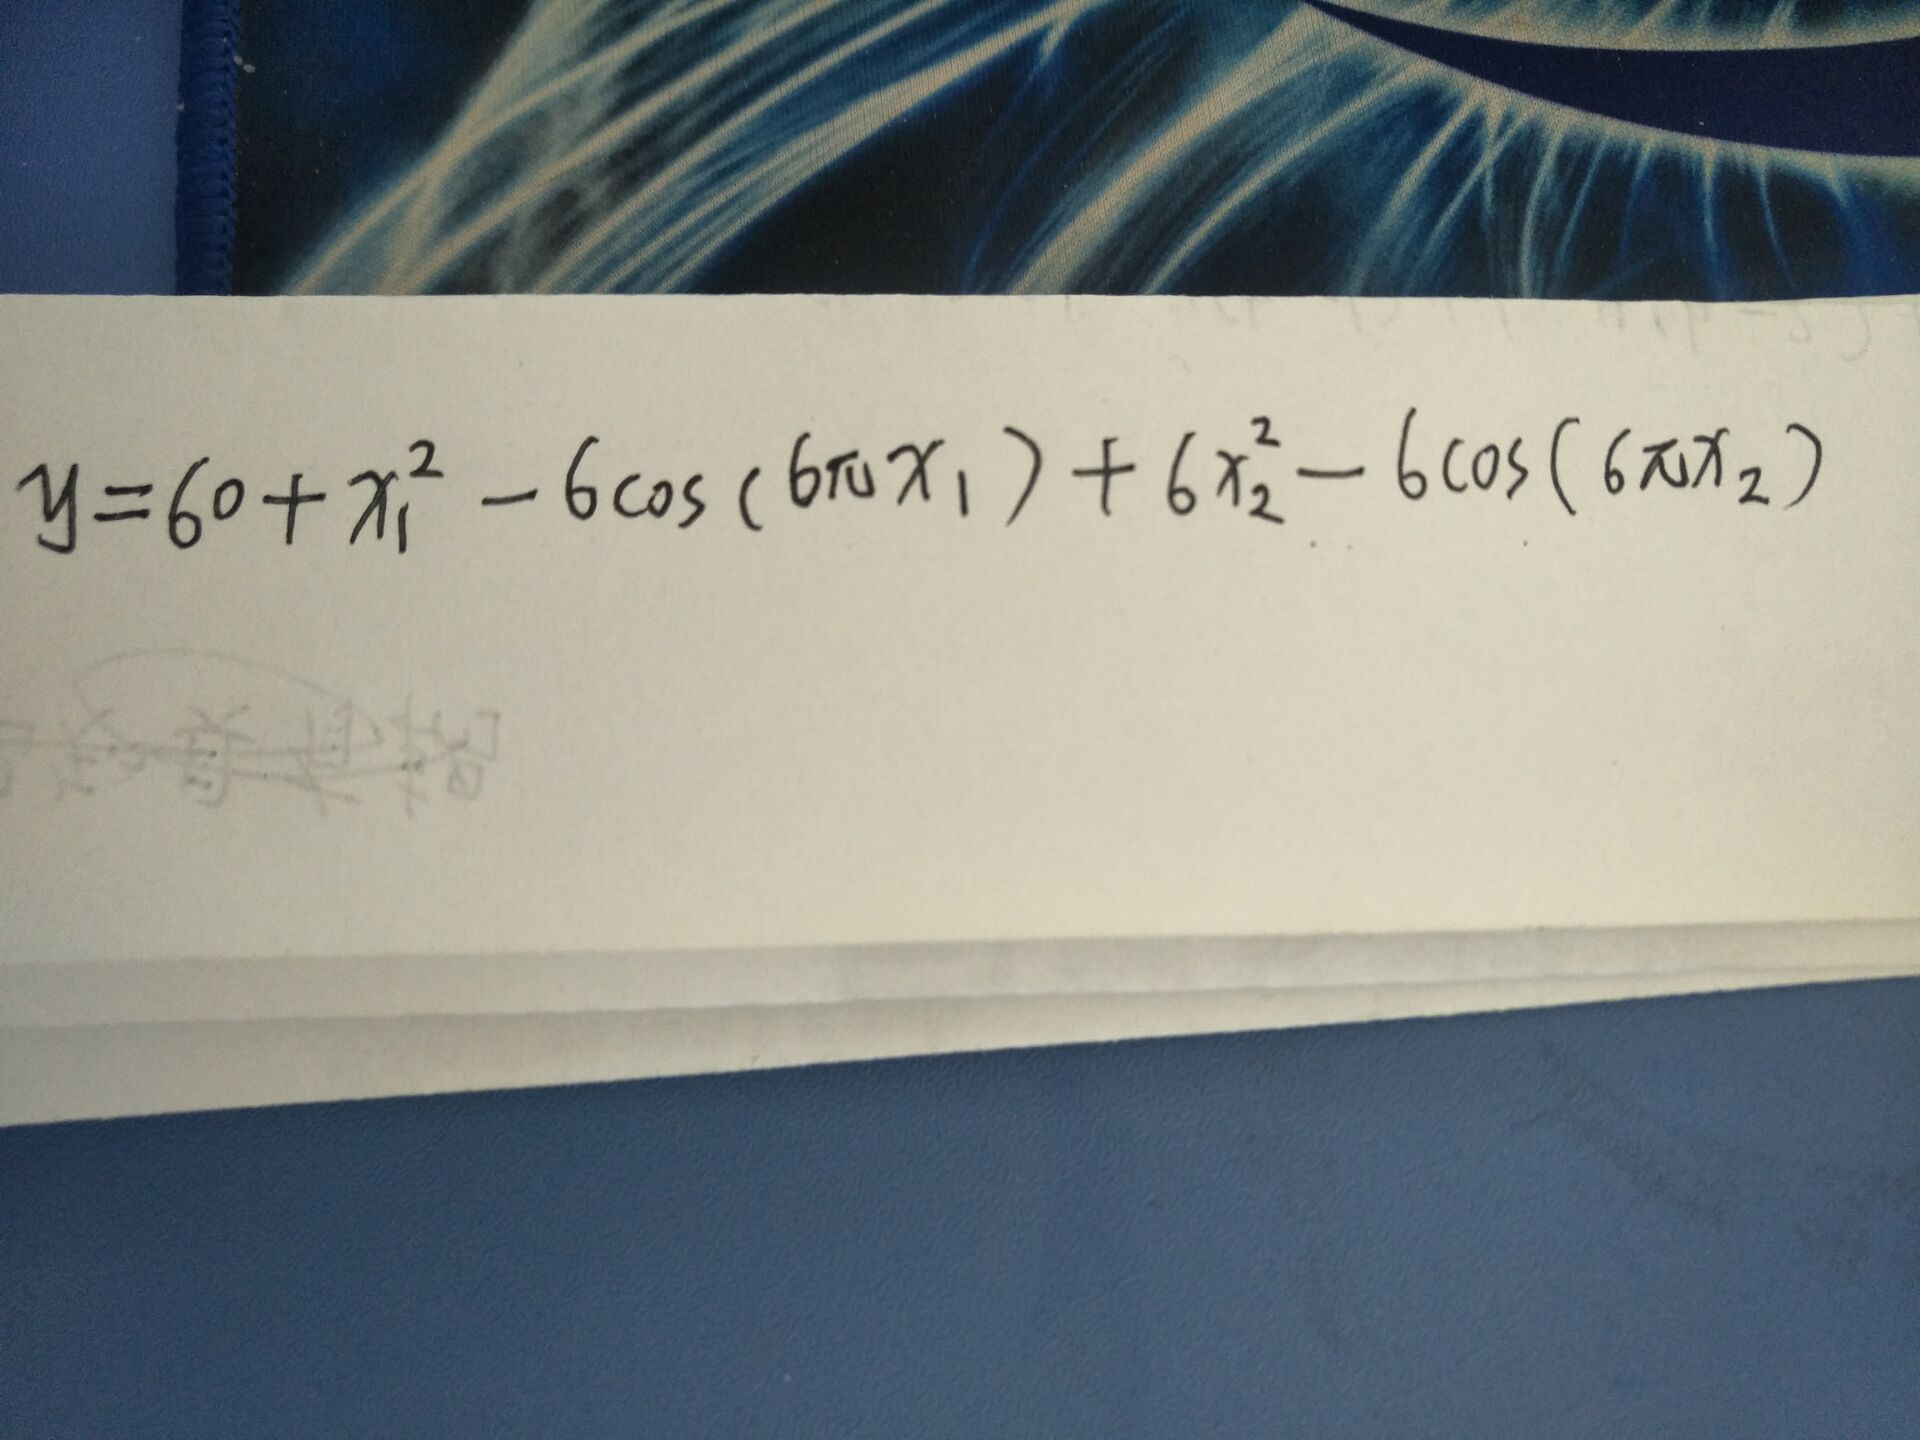 y=60+x₁²-6cos(6πx₁)+6x₂²-6cos(6πx₂)